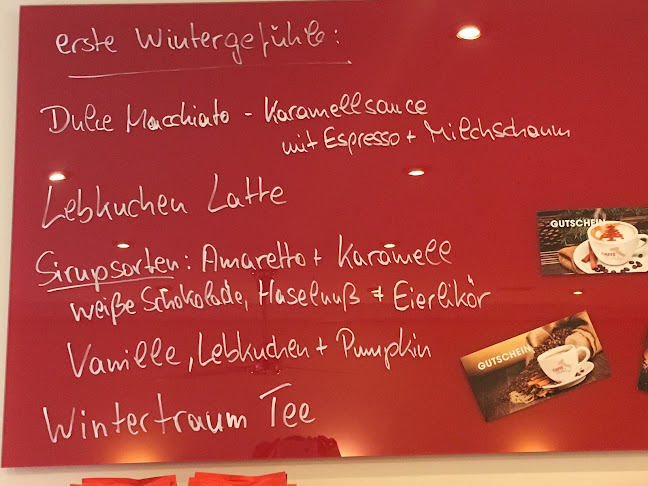 erste Wintergefühle:
Dulce Macchiato - Karamellsauce
mit Espresso + Milchschaum
Lebkuchen Latte
Sirupsorten: Amaretto + Karamell
weiße Schokolade, Haselnuß + Eierlikör
Vanille, Lebkuchen + Pumpkin
Wintertraum Tee
GUTSCHEIN
GUTSCHEIN